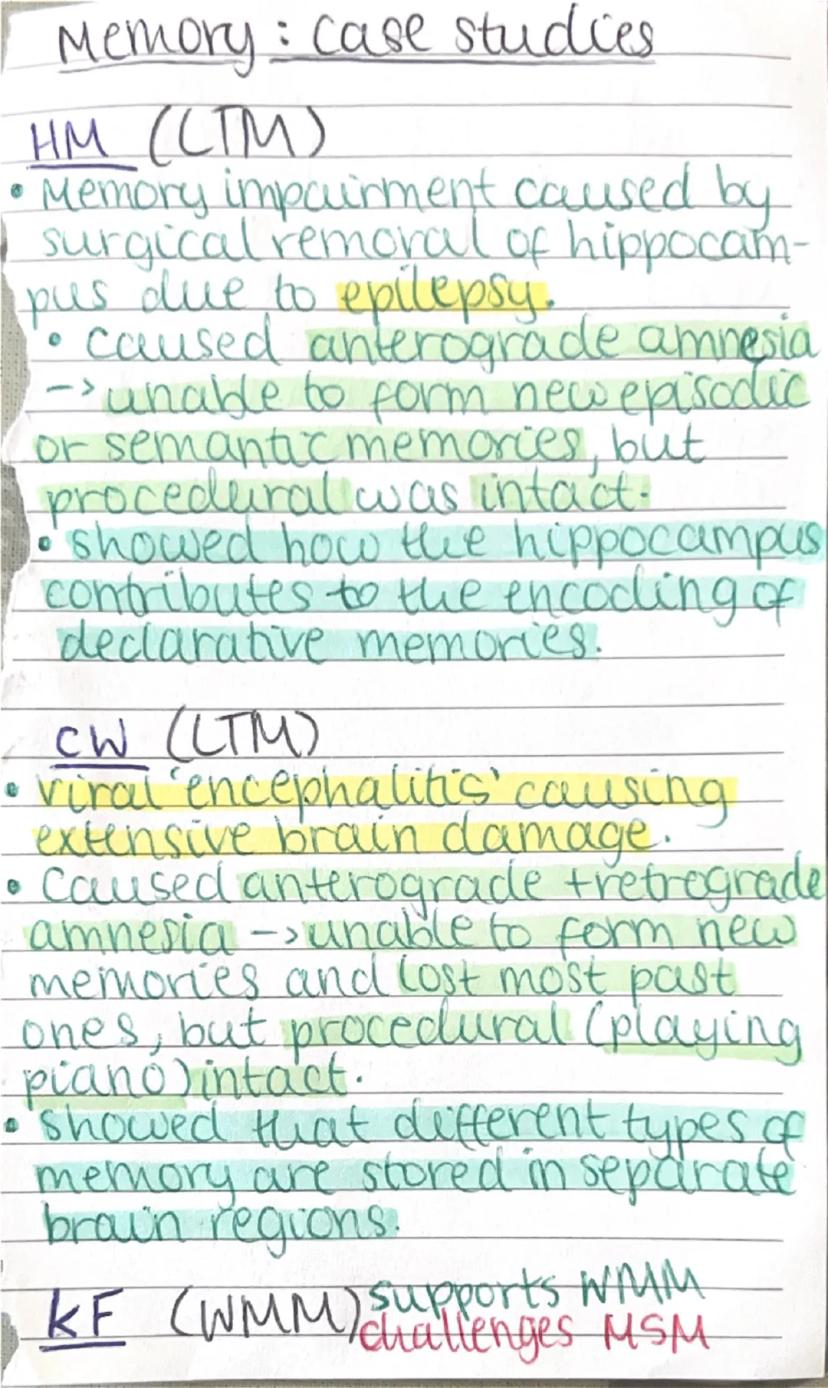 Memory: case studies
HM (LTM)
• Memory impairment caused by
surgical removal of hippocam-
pus due to epilepsy.
• caused anterograde amnesia
-> unable to form new episodic
or semantic memories, but
procedural was intact.
• showed how the hippocampus
contributes to the encoding of
declarative memories.
CW (LTM)
• viral 'encephalitis' causing
extensive brain damage.
• caused anterograde + retrograde
amnesia -> unable to form new
memories and lost most past
ones, but procedural (playing
piano) intact.
• showed that different types of
memory are stored in separate
brain regions.
KF (WMM) supports WMM
challenges MSM